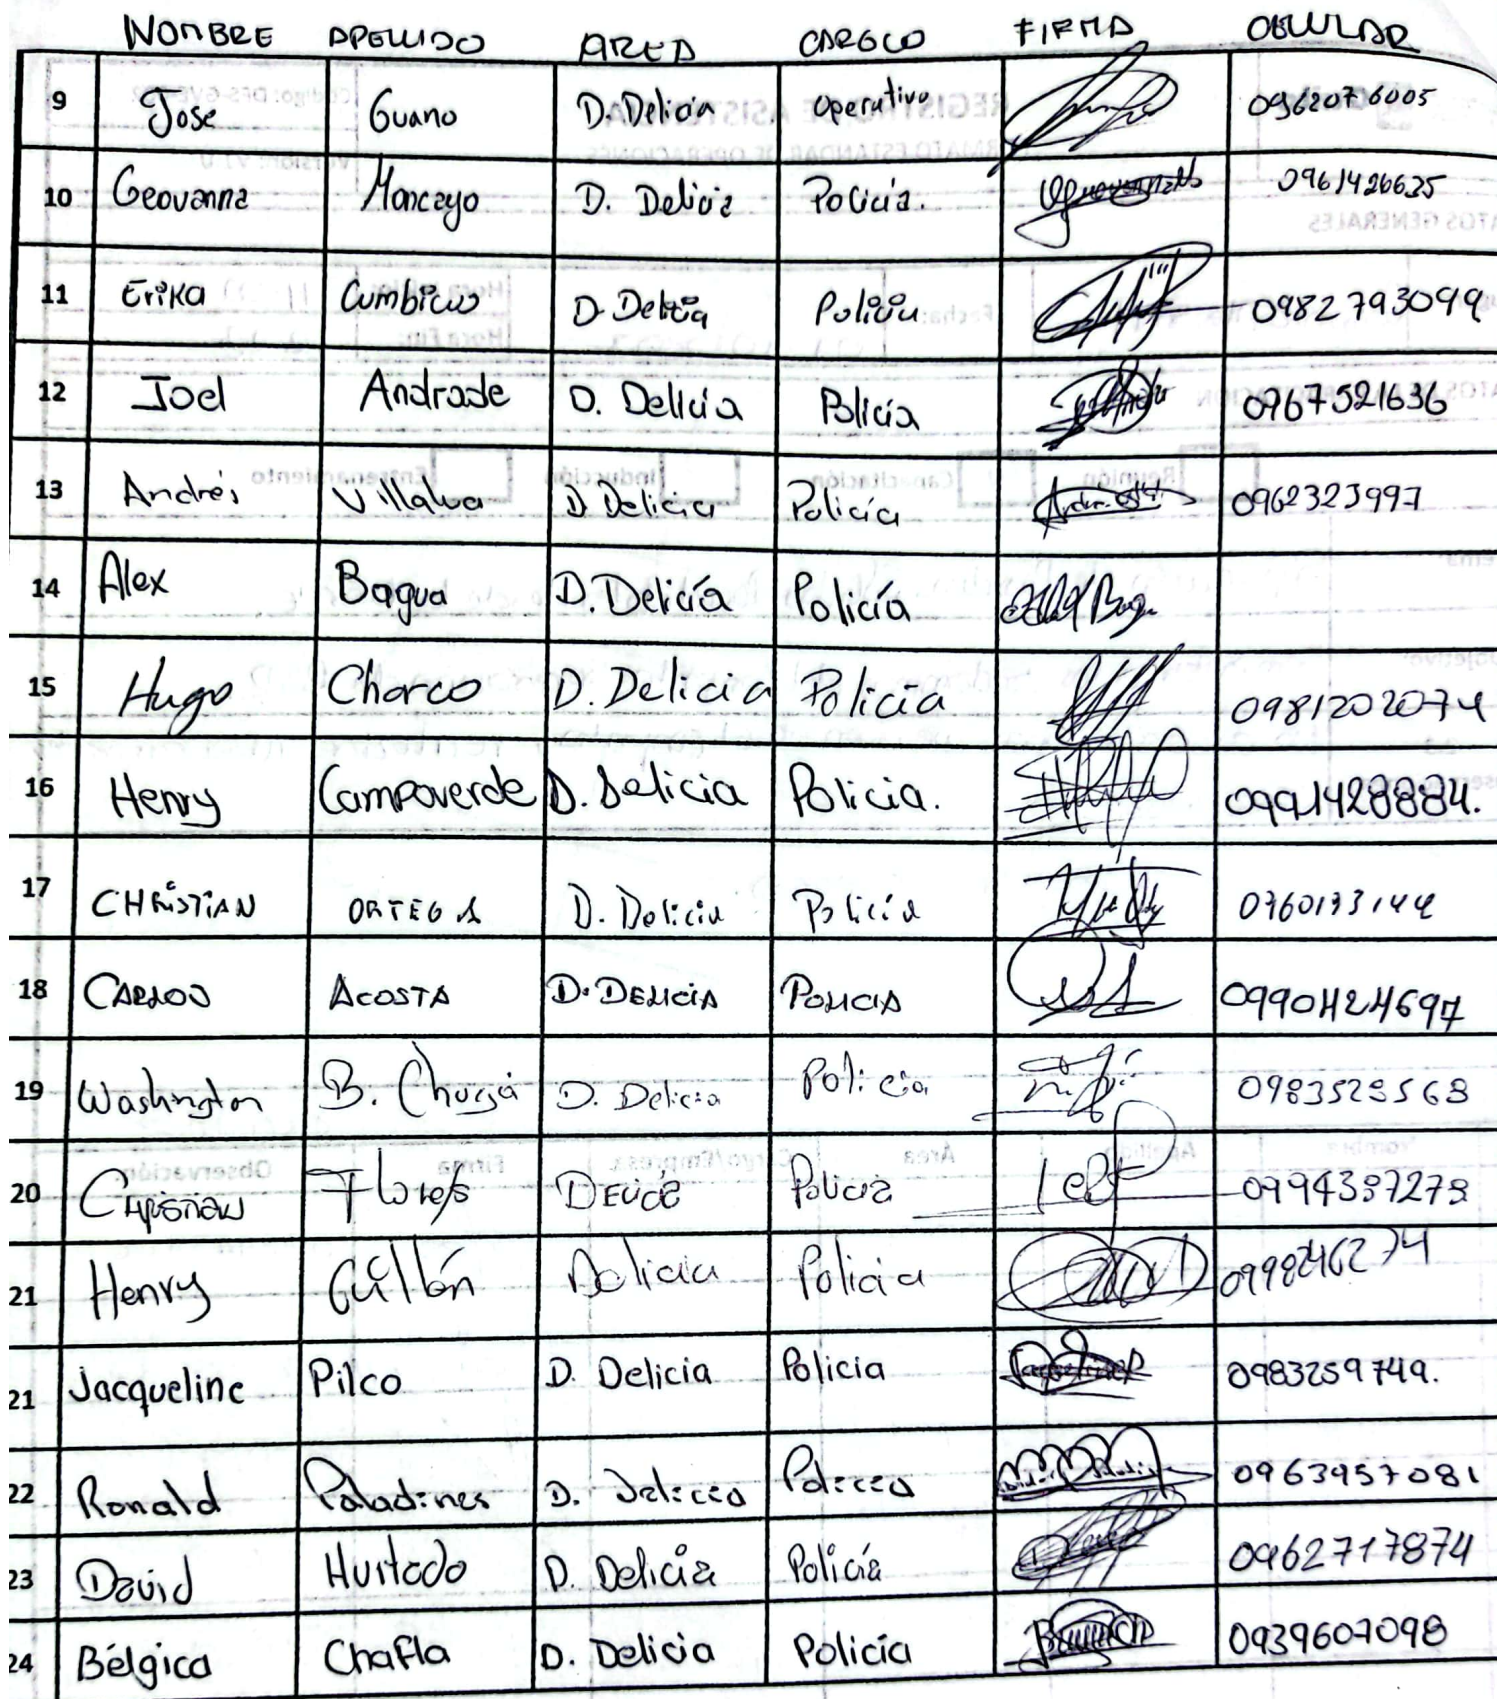 NOMBRE APELLIDO AREA CARGO FIRMA CELULAR
9 Jose Guano D. Delicia operativo 0962076005
10 Geovanna Moncayo D. Delicia Policía. 0961426635
11 Erika Cumbicus D. Delicia Policía 0982793099
12 Joel Andrade D. Delicia Policía 0967521636
13 Andrés Villalva D. Delicia Policía 0962323997
14 Alex Bagua D. Delicía Policía
15 Hugo Chorco D. Delicia Policía 0981202074
16 Henry Campoverde D. Delicia Policía. 0991428884.
17 CHRISTIAN ORTEGA D. Delicia Policía 0960133144
18 CARLOS ACOSTA D. DELICIA POLICIA 0990424697
19 Washington B. D. Delicia Policía 0983523568
20 Christian Flores DELICIA Policia 0994357273
21 Henry Guillén Delicia Policia 0998246274
21 Jacqueline Pilco D. Delicia Policia 0983259749.
22 Ronald Paladines D. Delicia Policia 0963957081
23 David Hurtado D. Delicia Policía 0962717874
24 Bélgica Chafla D. Delicia Policía 0939607098